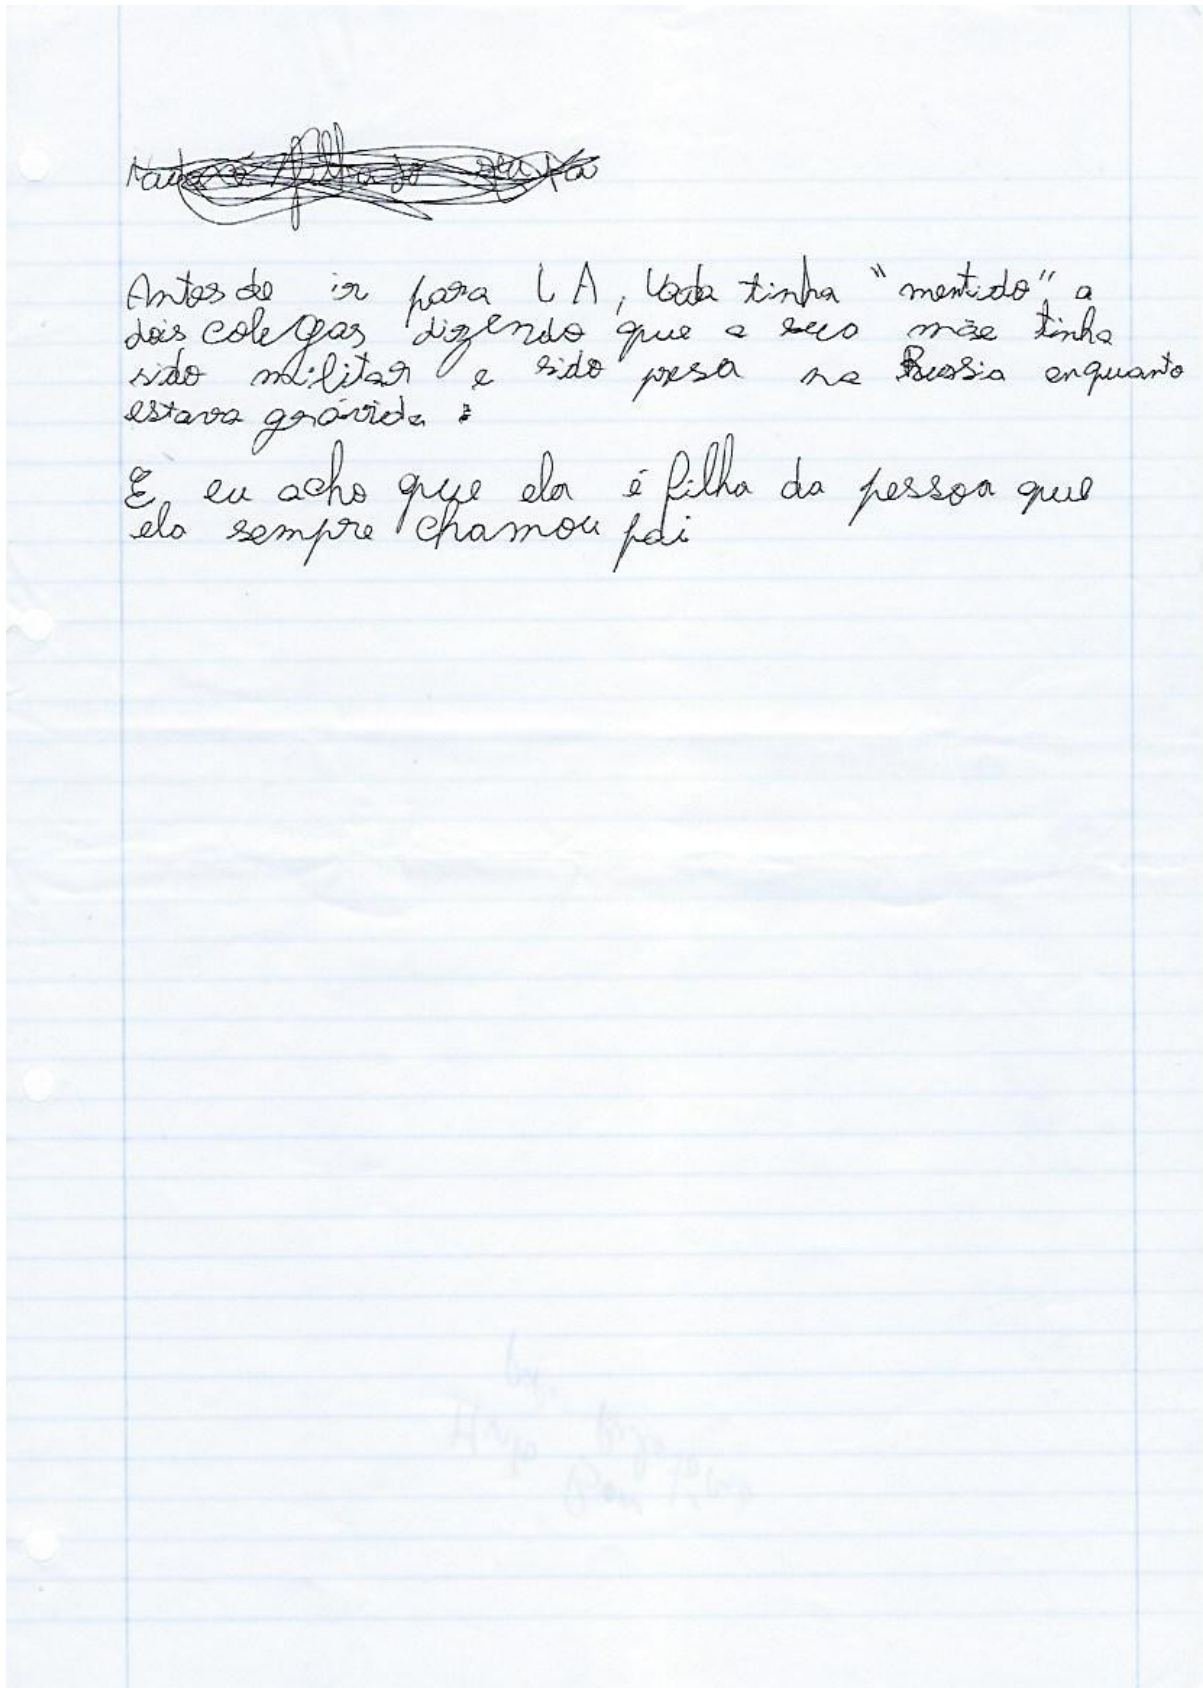 Antes de ir para LA, Vada tinha "mentido" a
dois colegas dizendo que a seu mãe tinha
sido militar e sido presa na Russia enquanto
estava grávida.
E, eu acho que ela é filha da pessoa que
ela sempre chamou pai